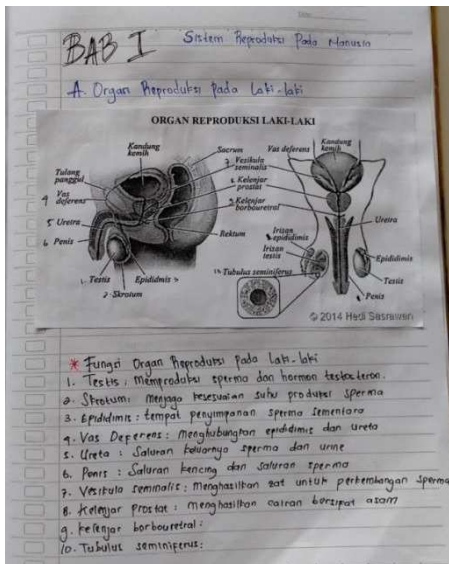 BAB I
Sistem Reproduksi Pada Manusia
A. Organ Reproduksi Pada Laki-laki
ORGAN REPRODUKSI LAKI-LAKI
Kandung kemih
Sacrum
Tulang panggul
7 Vesikula seminalis
4 Vas deferens
8 Kelenjar prostat
9 Kelenjar borbouretral
5 Uretra
6 Penis
Rektum
1. Testis
Epididmis 3
2. Skrotum
Vas deferens
Kandung kemih
Uretra
Irisan epididimis
Irisan testis
10 Tubulus seminiferus
Epididmis
Testis
Penis
© 2014 Hedi Sasrawan
* Fungsi Organ Reproduksi Pada Laki-laki
1. Testis : Memproduksi sperma dan hormon testosteron.
2. Skrotum : menjaga kesesuaian suhu produksi sperma
3. Epididimis : tempat penyimpanan sperma sementara
4. Vas Deferens : Menghubungkan epididimis dan ureta
5. Ureta : Saluran keluarnya sperma dan urine
6. Penis : Saluran kencing dan saluran sperma
7. Vesikula seminalis : Menghasilkan zat untuk perkembangan sperma
8. Kelenjar prostat : menghasilkan cairan bersipat asam
9. kelenjar borbouretral :
10. Tubulus seminiferus :